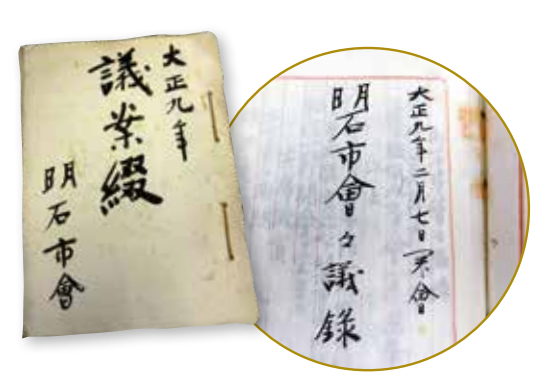 大正九年
議案綴
明石市會
大正九年二月七日開會
明石市會々議録